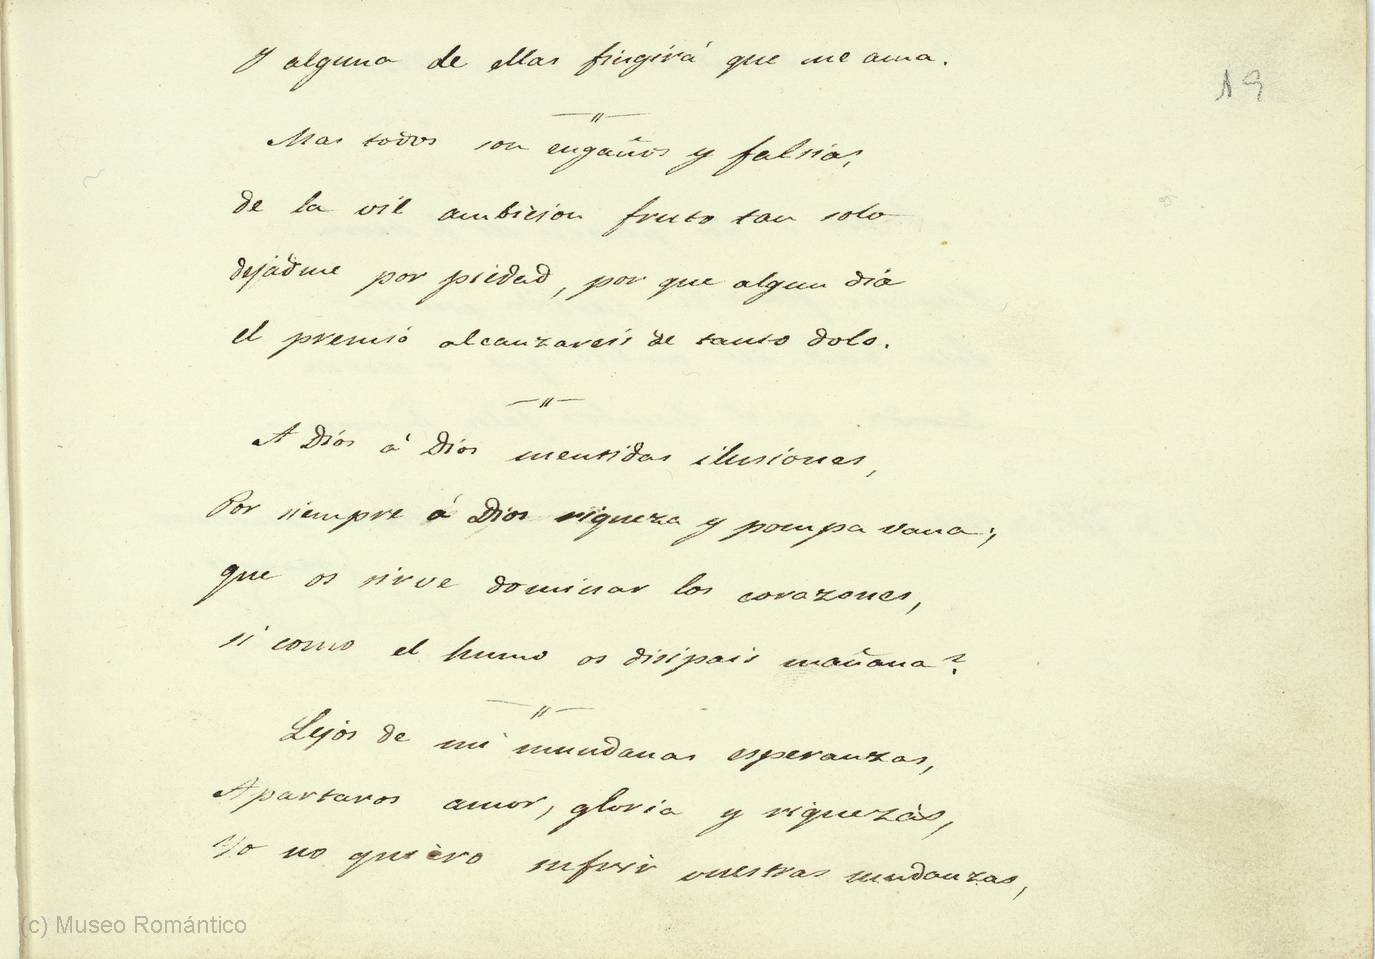 Y alguna de ellas fingirá que me ama.
19
Mas todos son engaños y falsias,
de la vil ambicion fruto tan solo
dejadme por piedad, por que algun dia
el premio alcanzareis de tanto dolo.
A Dios á Dios mentidas ilusiones,
Por siempre á Dios riqueza y pompa vana;
que os sirve dominar los corazones,
si como el humo os disipais mañana?
Lejos de mi mundanas esperanzas,
Apartaros amor, gloria y riquezas,
Yo no quiero sufrir vuestras mudanzas,
(c) Museo Romántico